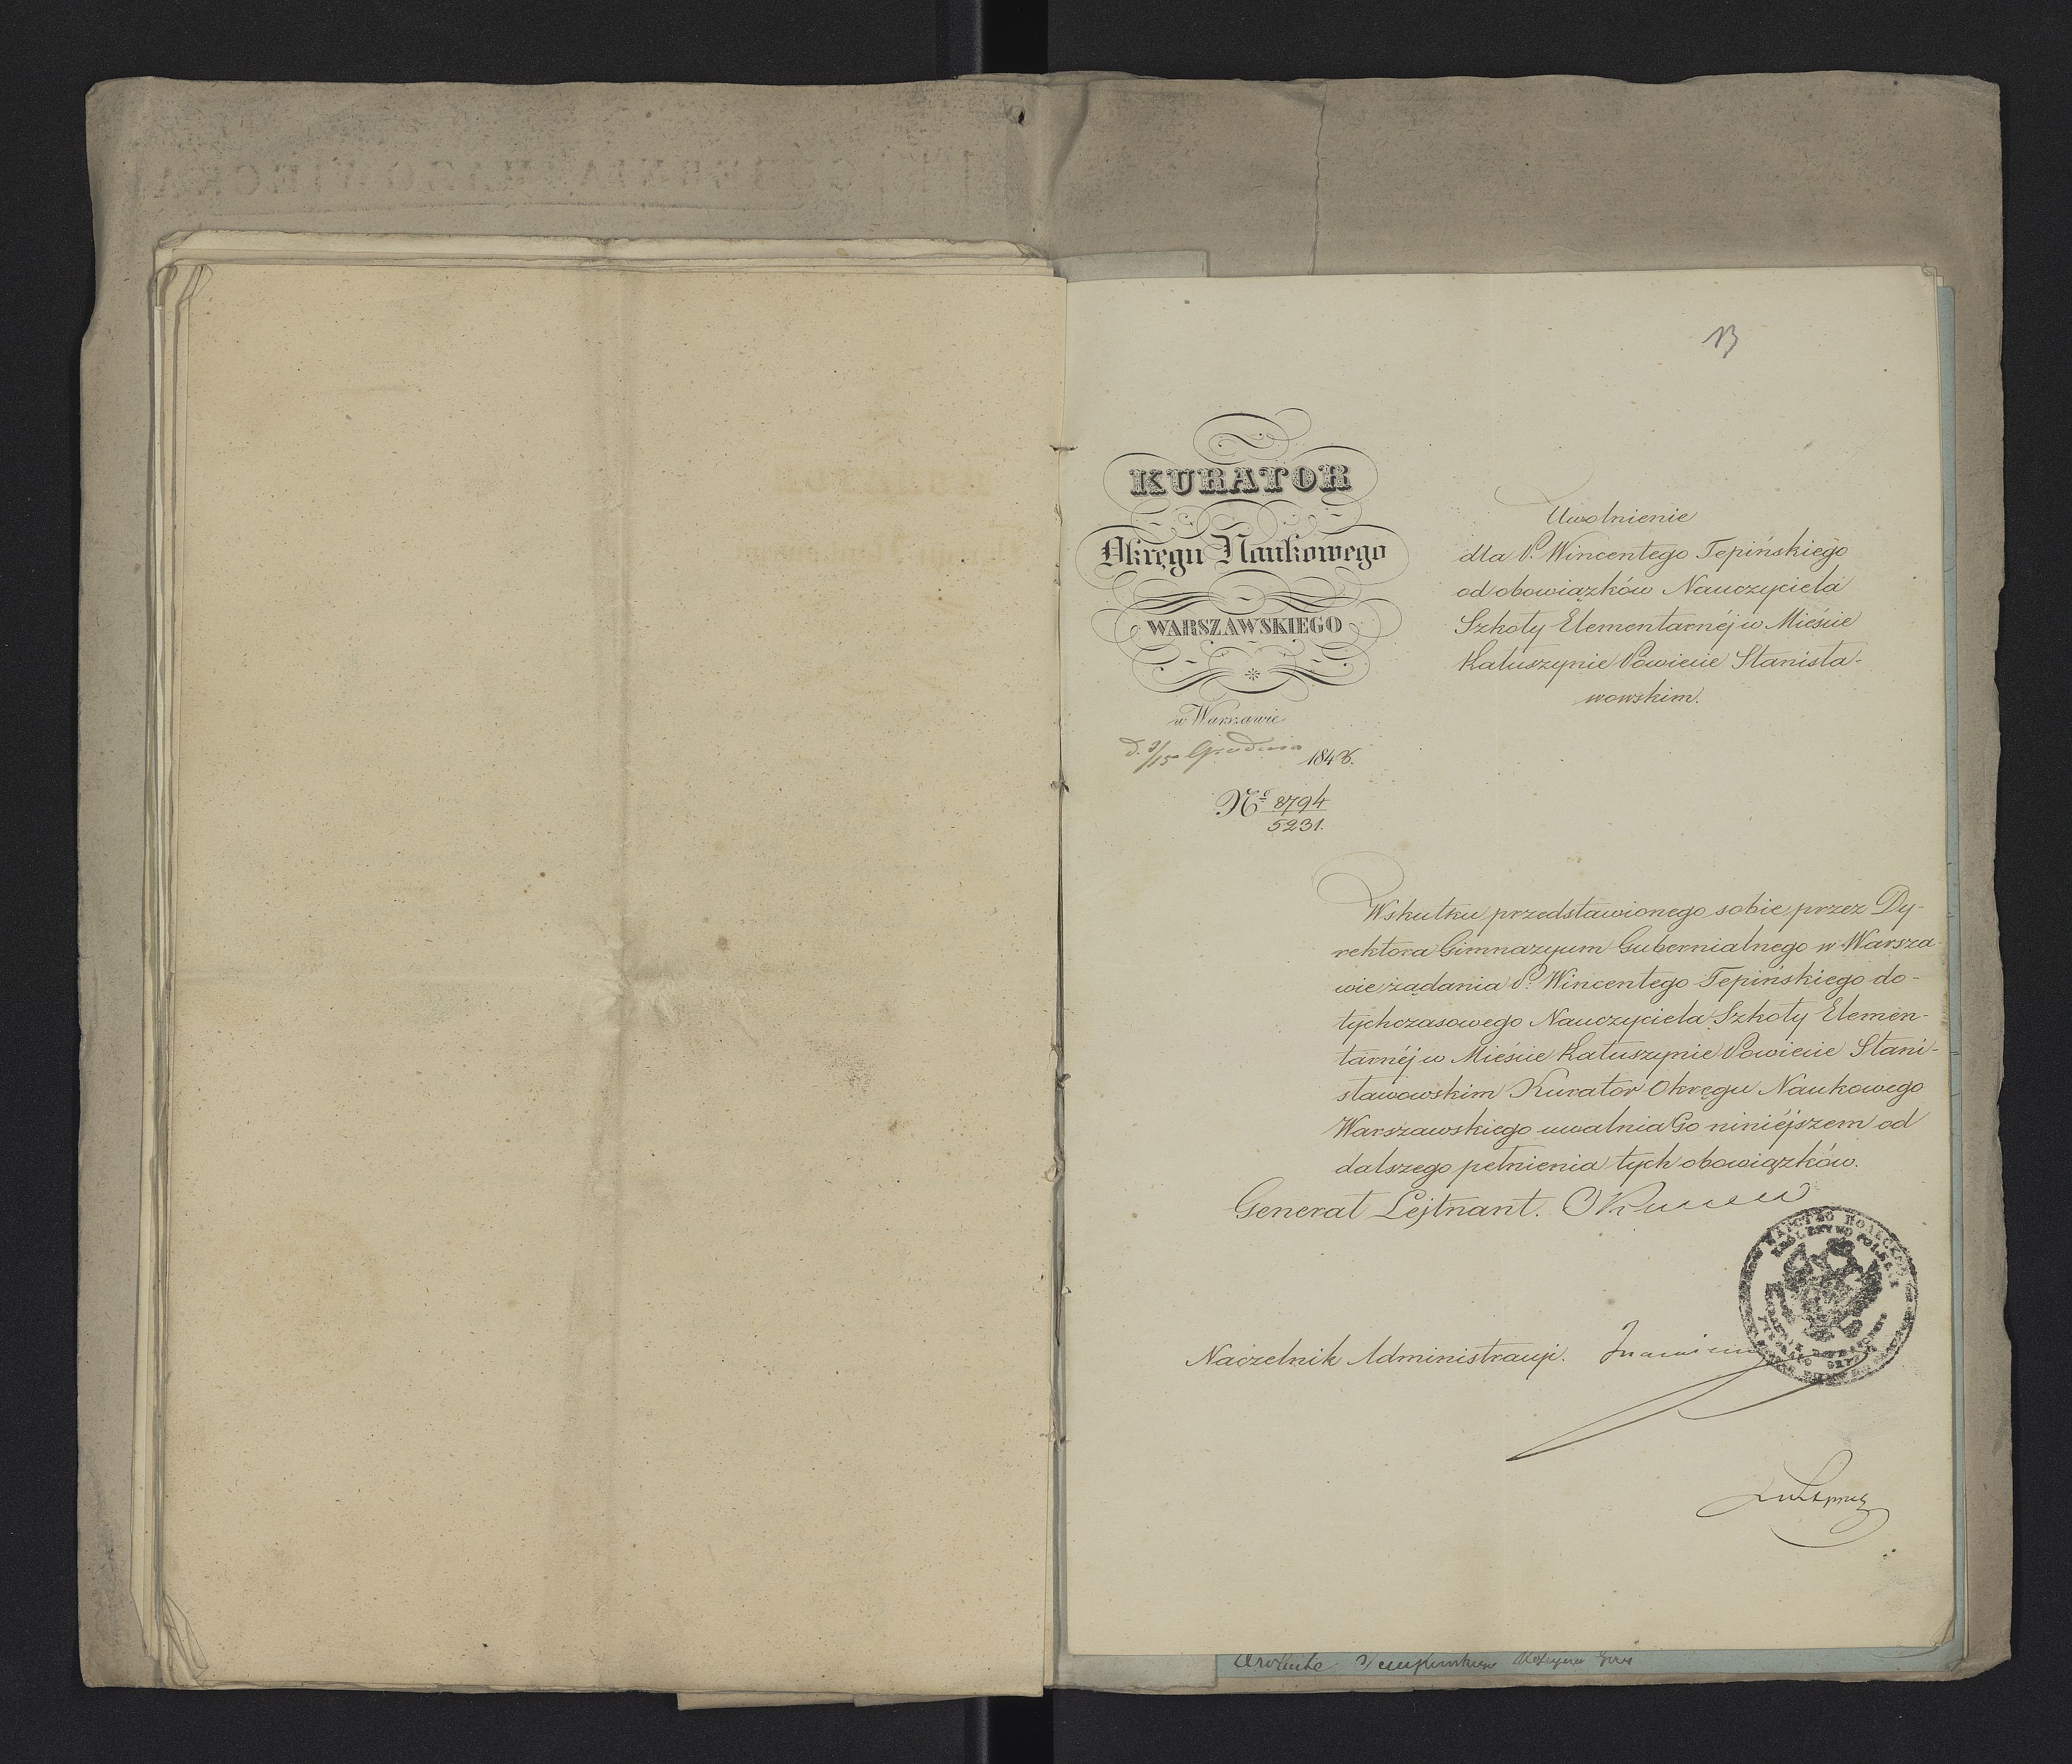 13
KURATOR
Okręgu Naukowego
WARSZAWSKIEGO
w Warszawie
d. 3/15 Grudnia 1848.
Nº 8794
5231.
Uwolnienie
dla P. Wincentego Tepińskiego
od obowiązków Nauczyciela
Szkoły Elementarnéj w Mieście
Kałuszynie Powiecie Stanisła-
wowskim.
Wskutku przedstawionego sobie przez Dy-
rektora Gimnazyum Gubernialnego w Warsza-
wie żądania P. Wincentego Tepińskiego do-
tychczasowego Nauczyciela Szkoły Elemen-
tarnéj w Mieście Kałuszynie Powiecie Stani-
sławowskim Kurator Okręgu Naukowego
Warszawskiego uwalnia Go niniéjszem od
dalszego pełnienia tych obowiązków.
Generał Lejtnant. Okunew
Naczelnik Administracyi.
KRÓLESTWO POLSKIE